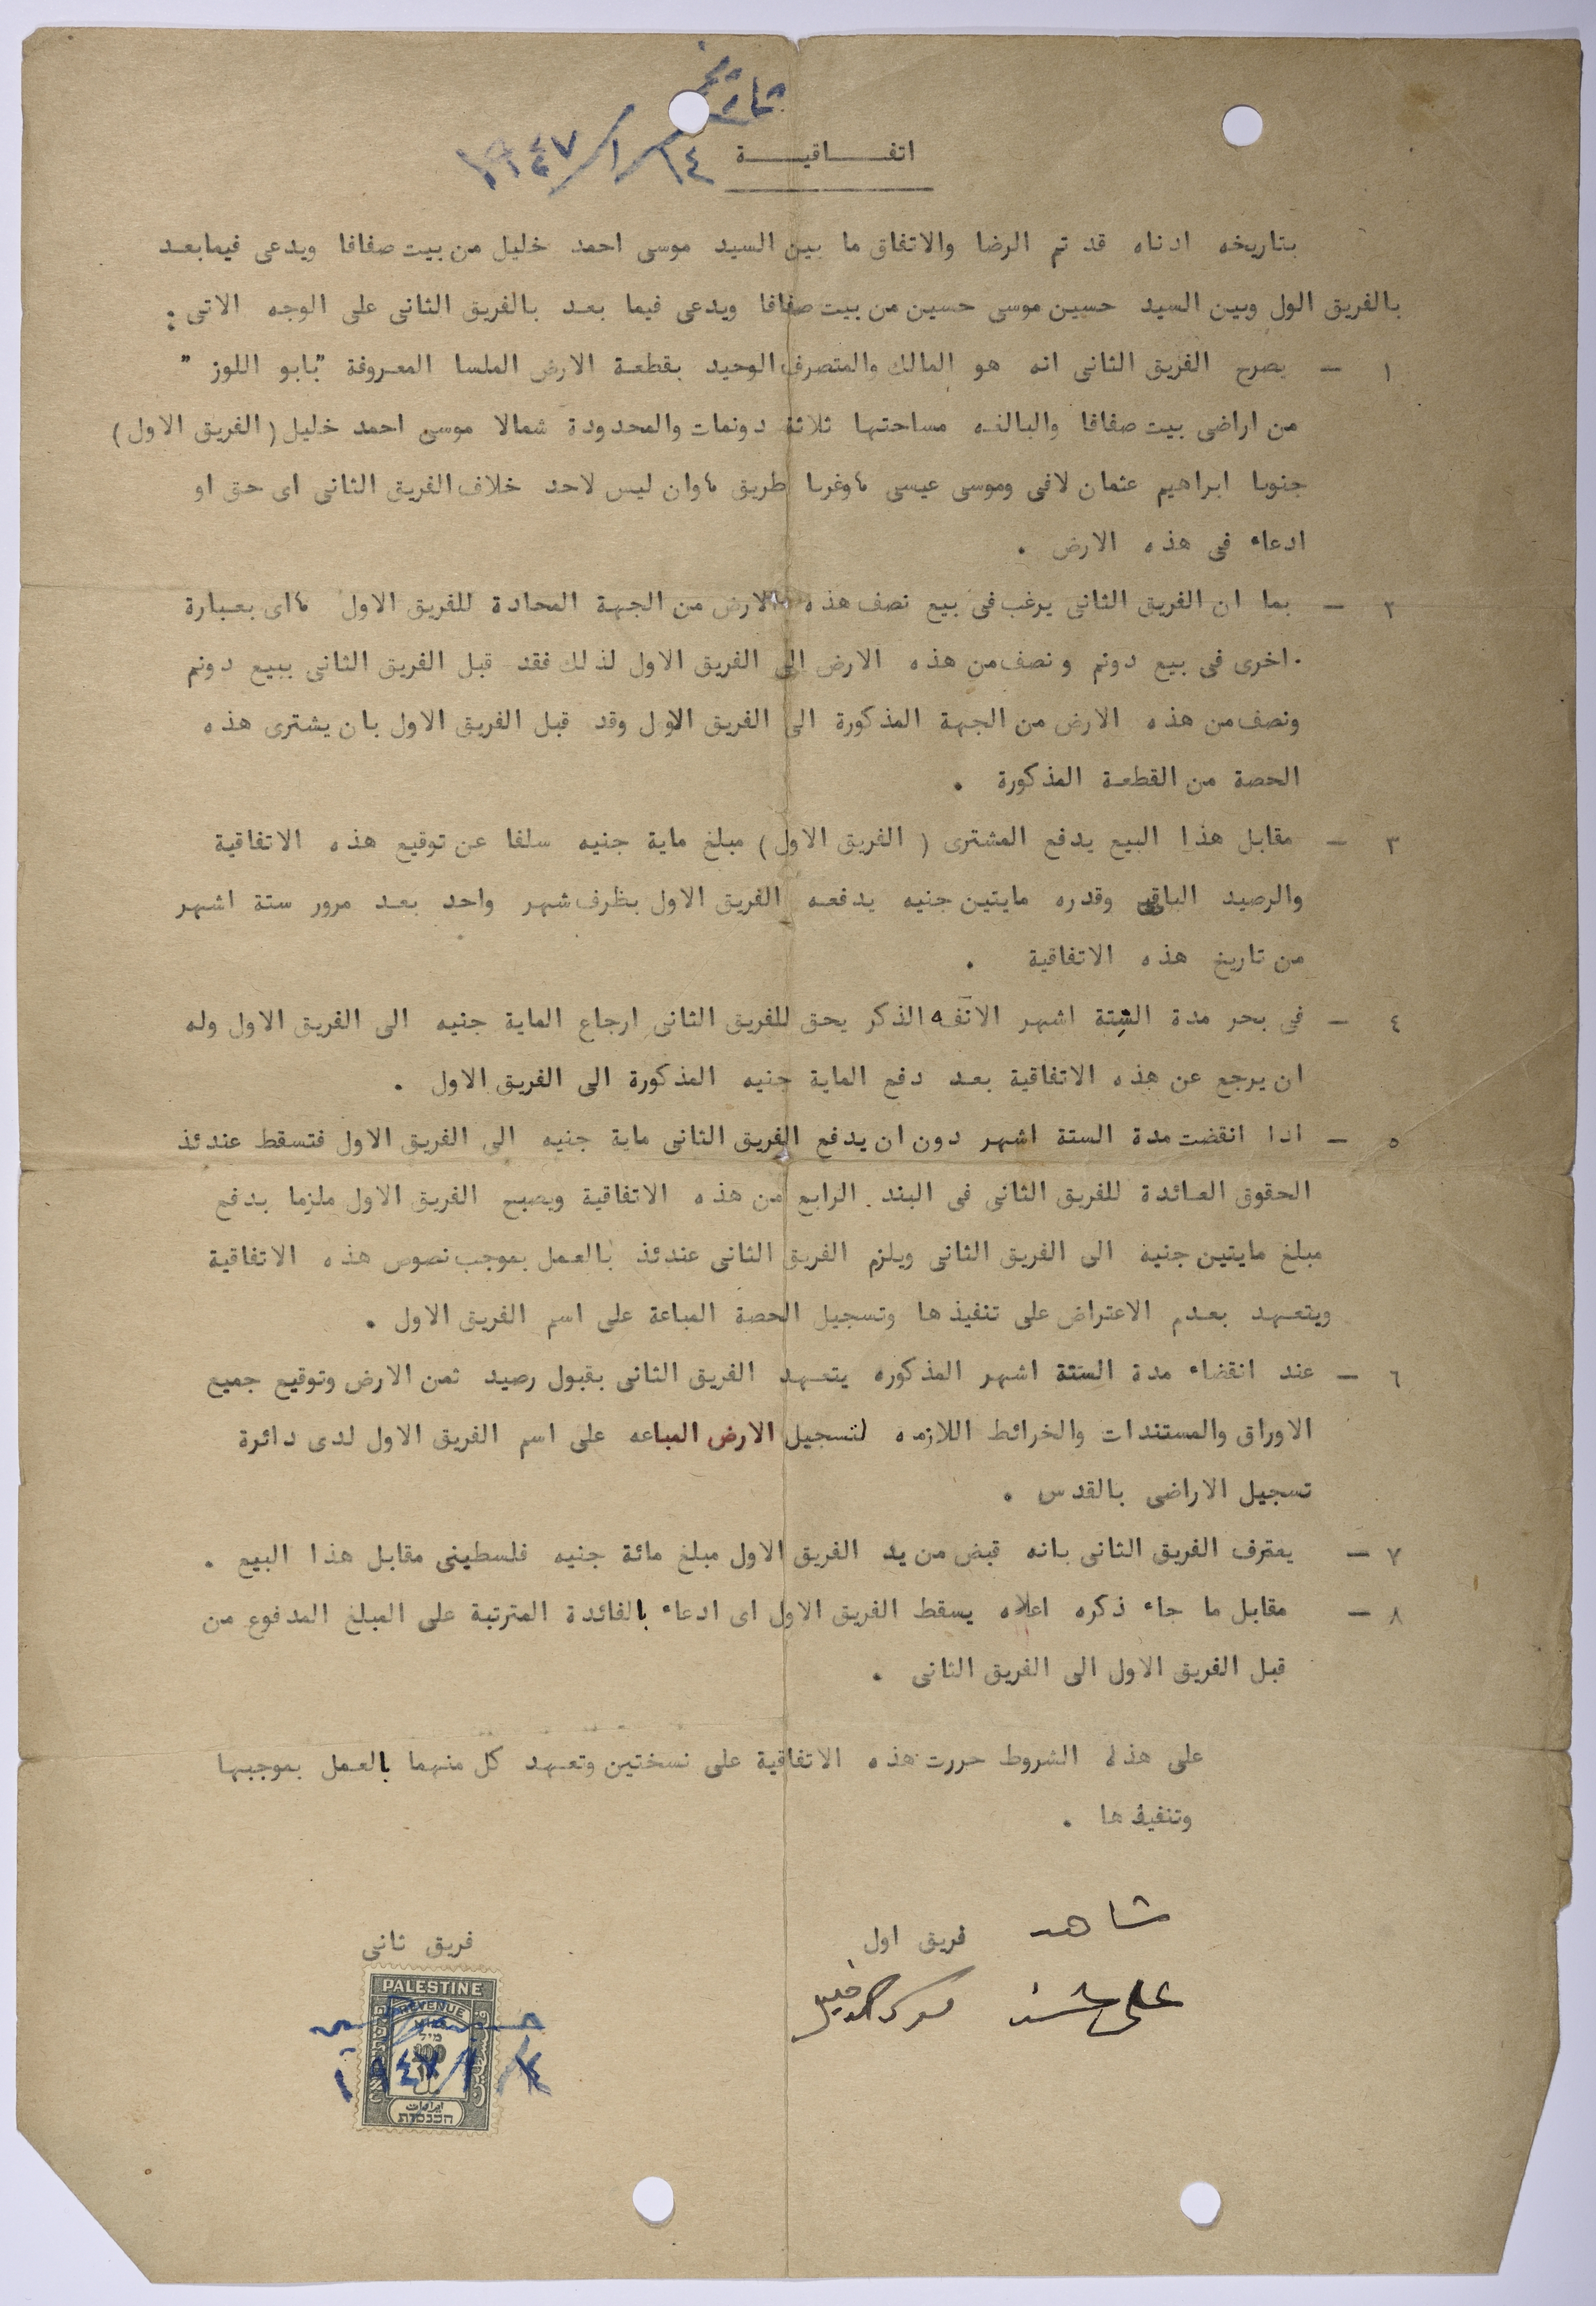 بتاريخ
اتفـــاقيـــة ١٤/١/١٩٤٧
بتاريخه ادناه قد تم الرضا والاتفاق ما بين السيد موسى احمد خليل من بيت صفافا ويدعى فيمابعد
بالفريق الول وبين السيد حسين موسى حسين من بيت صفافا ويدعى فيما بعد بالفريق الثانى على الوجه الاتى :
١ – يصرح الفريق الثانى انه هو المالك والمتصرف الوحيد بقطعة الارض الملسا المعروفة "بابو اللوز "
من اراضى بيت صفافا والبالغه مساحتها ثلاثة دونمات والمحدودة شمالا موسى احمد خليل (الفريق الاول)
جنوبا ابراهيم عثمان لافى وموسى عيسى ،وغربا طريق ،وان ليس لاحد خلاف الفريق الثانى اى حق او
ادعاء فى هذه الارض .
٢ – بما ان الفريق الثانى يرغب فى بيع نصف هذه الارض من الجهة المحادة للفريق الاول ،اى بعبارة
اخرى فى بيع دونم ونصف من هذه الارض الى الفريق الاول لذلك فقد قبل الفريق الثانى ببيع دونم
ونصف من هذه الارض من الجهة المذكورة الى الفريق الاول وقد قبل الفريق الاول بان يشترى هذه
الحصة من القطعة المذكورة .
٣ – مقابل هذا البيع يدفع المشترى ( الفريق الاول ) مبلغ ماية جنيه سلفا عن توقيع هذه الاتفاقية
والرصيد الباقى وقدره مايتين جنيه يدفعه الفريق الاول بظرف شهر واحد بعد مرور ستة اشهر
من تاريخ هذه الاتفاقية .
٤ – فى بحر مدة الستة اشهر الانفه الذكر يحق للفريق الثانى ارجاع الماية جنيه الى الفريق الاول وله
ان يرجع عن هذه الاتفاقية بعد دفع الماية جنيه المذكورة الى الفريق الاول .
٥ – اذا انقضت مدة الستة اشهر دون ان يدفع الفريق الثانى ماية جنيه الى الفريق الاول فتسقط عندئذ
الحقوق العائدة للفريق الثانى فى البند الرابع من هذه الاتفاقية ويصبح الفريق الاول ملزما بدفع
مبلغ مايتين جنية الى الفريق الثانى ويلزم الفريق الثانى عندئذ بالعمل بموجب نصوص هذه الاتفاقية
ويتعهد بعدم الاعتراض على تنفيذها وتسجيل الحصة المباعة على اسم الفريق الاول .
٦ – عند انقضاء مدة الستة اشهر المذكوره يتعهد الفريق الثانى بقبول رصيد ثمن الارض وتوقيع جميع
الاوراق والمستندات والخرائط اللازمه لتسجيل الارض المباعه على اسم الفريق الاول لدى دائرة
تسجيل الاراضى بالقدس .
٧ – يعترف الفريق الثانى بانه قبض من يد الفريق الاول مبلغ مائة جنيه فلسطينى مقابل هذا البيع .
٨ – مقابل ما جاء ذكره اعلاه يسقط الفريق الاول اى ادعاء بالفائدة المترتبة على المبلغ المدفوع من
قبل الفريق الاول الى الفريق الثانى .
على هذه الشروط حررت هذه الاتفاقية على نسختين وتعهد كل منهما بالعمل بموجبها
وتنفيذها .
شاهد فريق اول فريق ثانى
على
PALESTINE
REVENUE
100
١٩٤٧/١/١٤
ايرادات
הכנסות